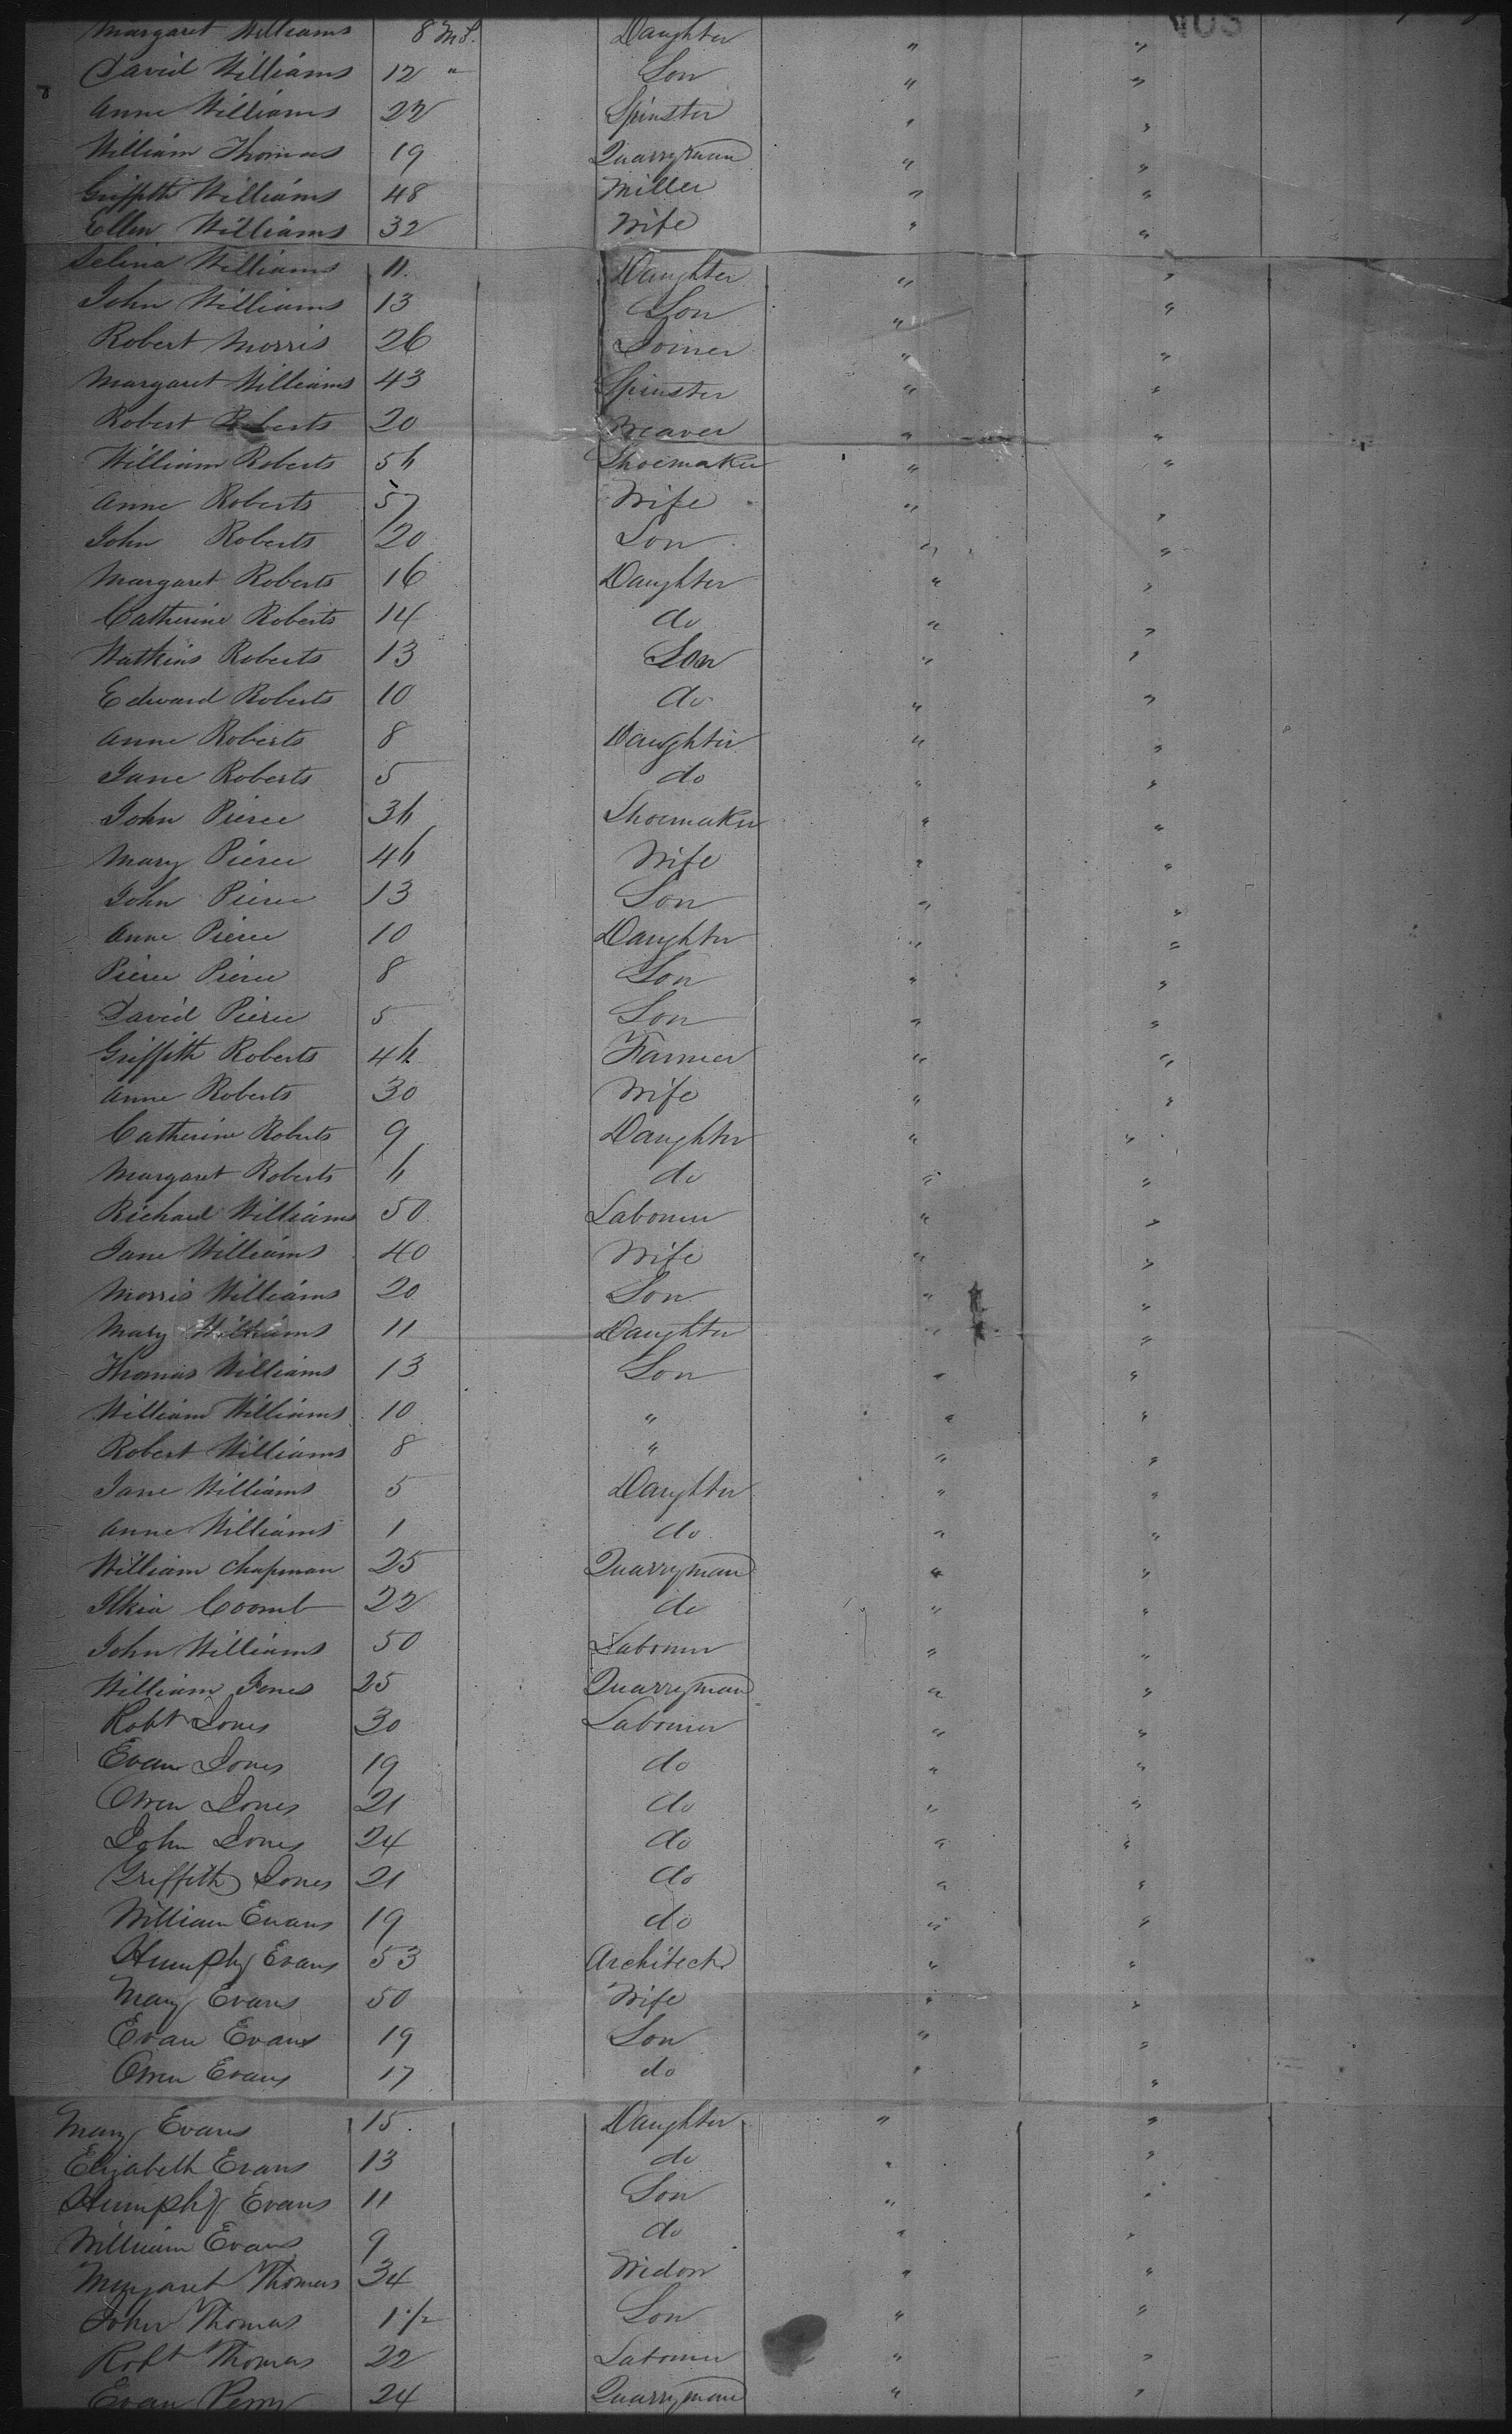 403
Margaret Williams 8 Ms. Daughter " "
David Williams 12 " Son " "
Anne Williams 22 Spinster " "
William Thomas 19 Quarryman " "
Griffith Williams 48 Miller " "
Ellen Williams 32 Wife " "
Selina Williams 11 Daughter " "
John Williams 13 Son " "
Robert Morris 26 Joiner " "
Margaret Williams 43 Spinster " "
Robert Roberts 20 Weaver " "
William Roberts 56 Shoemaker " "
Anne Roberts 57 Wife " "
John Roberts 20 Son " "
Margaret Roberts 16 Daughter " "
Catherine Roberts 14 do " "
Watkins Roberts 13 Son " "
Edward Roberts 10 do " "
Anne Roberts 8 Daughter " "
Jane Roberts 5 do " "
John Pierce 36 Shoemaker " "
Mary Pierce 46 Wife " "
John Pierce 13 Son " "
Anne Pierce 10 Daughter " "
Pierce Pierce 8 Son " "
David Pierce 5 Son " "
Griffith Roberts 46 Farmer " "
Anne Roberts 30 Wife " "
Catherine Roberts 9 Daughter " "
Margaret Roberts 6 do " "
Richard Williams 50 Labourer " "
Jane Williams 40 Wife " "
Morris Williams 20 Son " "
Mary Williams 11 Daughter " "
Thomas Williams 13 Son " "
William Williams 10 " " "
Robert Williams 8 " " "
Jane Williams 5 Daughter " "
Anne Williams 1 do " "
William Chapman 25 Quarryman " "
Ilkia Coomb 22 do " "
John Williams 50 Labourer " "
William Jones 25 Quarryman " "
Robt Jones 30 Labourer " "
Evan Jones 19 do " "
Owen Jones 21 do " "
John Jones 24 do " "
Griffith Jones 21 do " "
William Evans 19 do " "
Humphy Evans 53 Architect " "
Mary Evans 50 Wife " "
Evan Evans 19 Son " "
Owen Evans 17 do " "
Mary Evans 15 Daughter " "
Elizabeth Evans 13 do " "
Humphy Evans 11 Son " "
William Evans 9 do " "
Margaret Thomas 34 Widow " "
John Thomas 1 1/2 Son " "
Robt Thomas 22 Labourer " "
Evan Perry 24 Quarryman " "